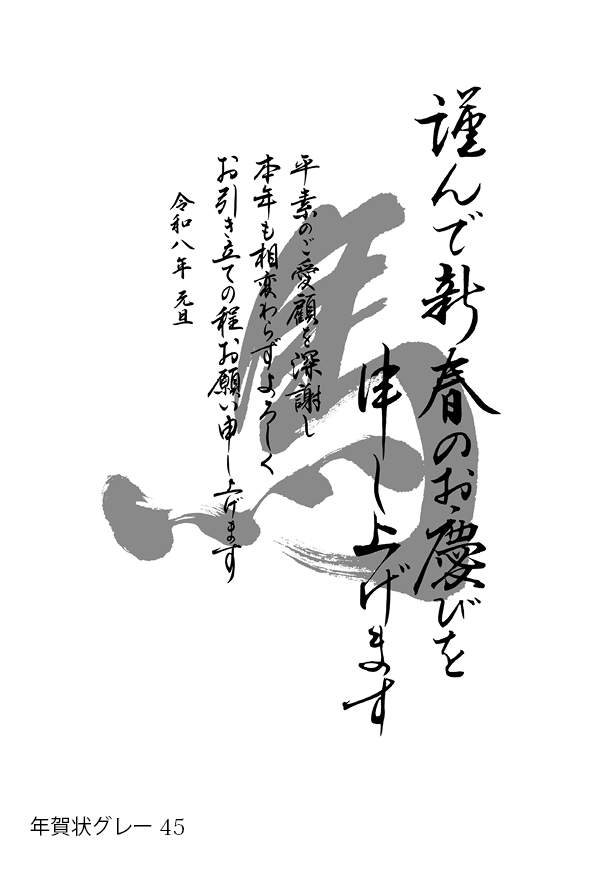 謹んで新春のお慶びを
申し上げます
平素のご愛顧を深謝し
本年も相変わらずよろしく
お引き立ての程お願い申し上げます
令和八年 元旦
馬
年賀状グレー 45